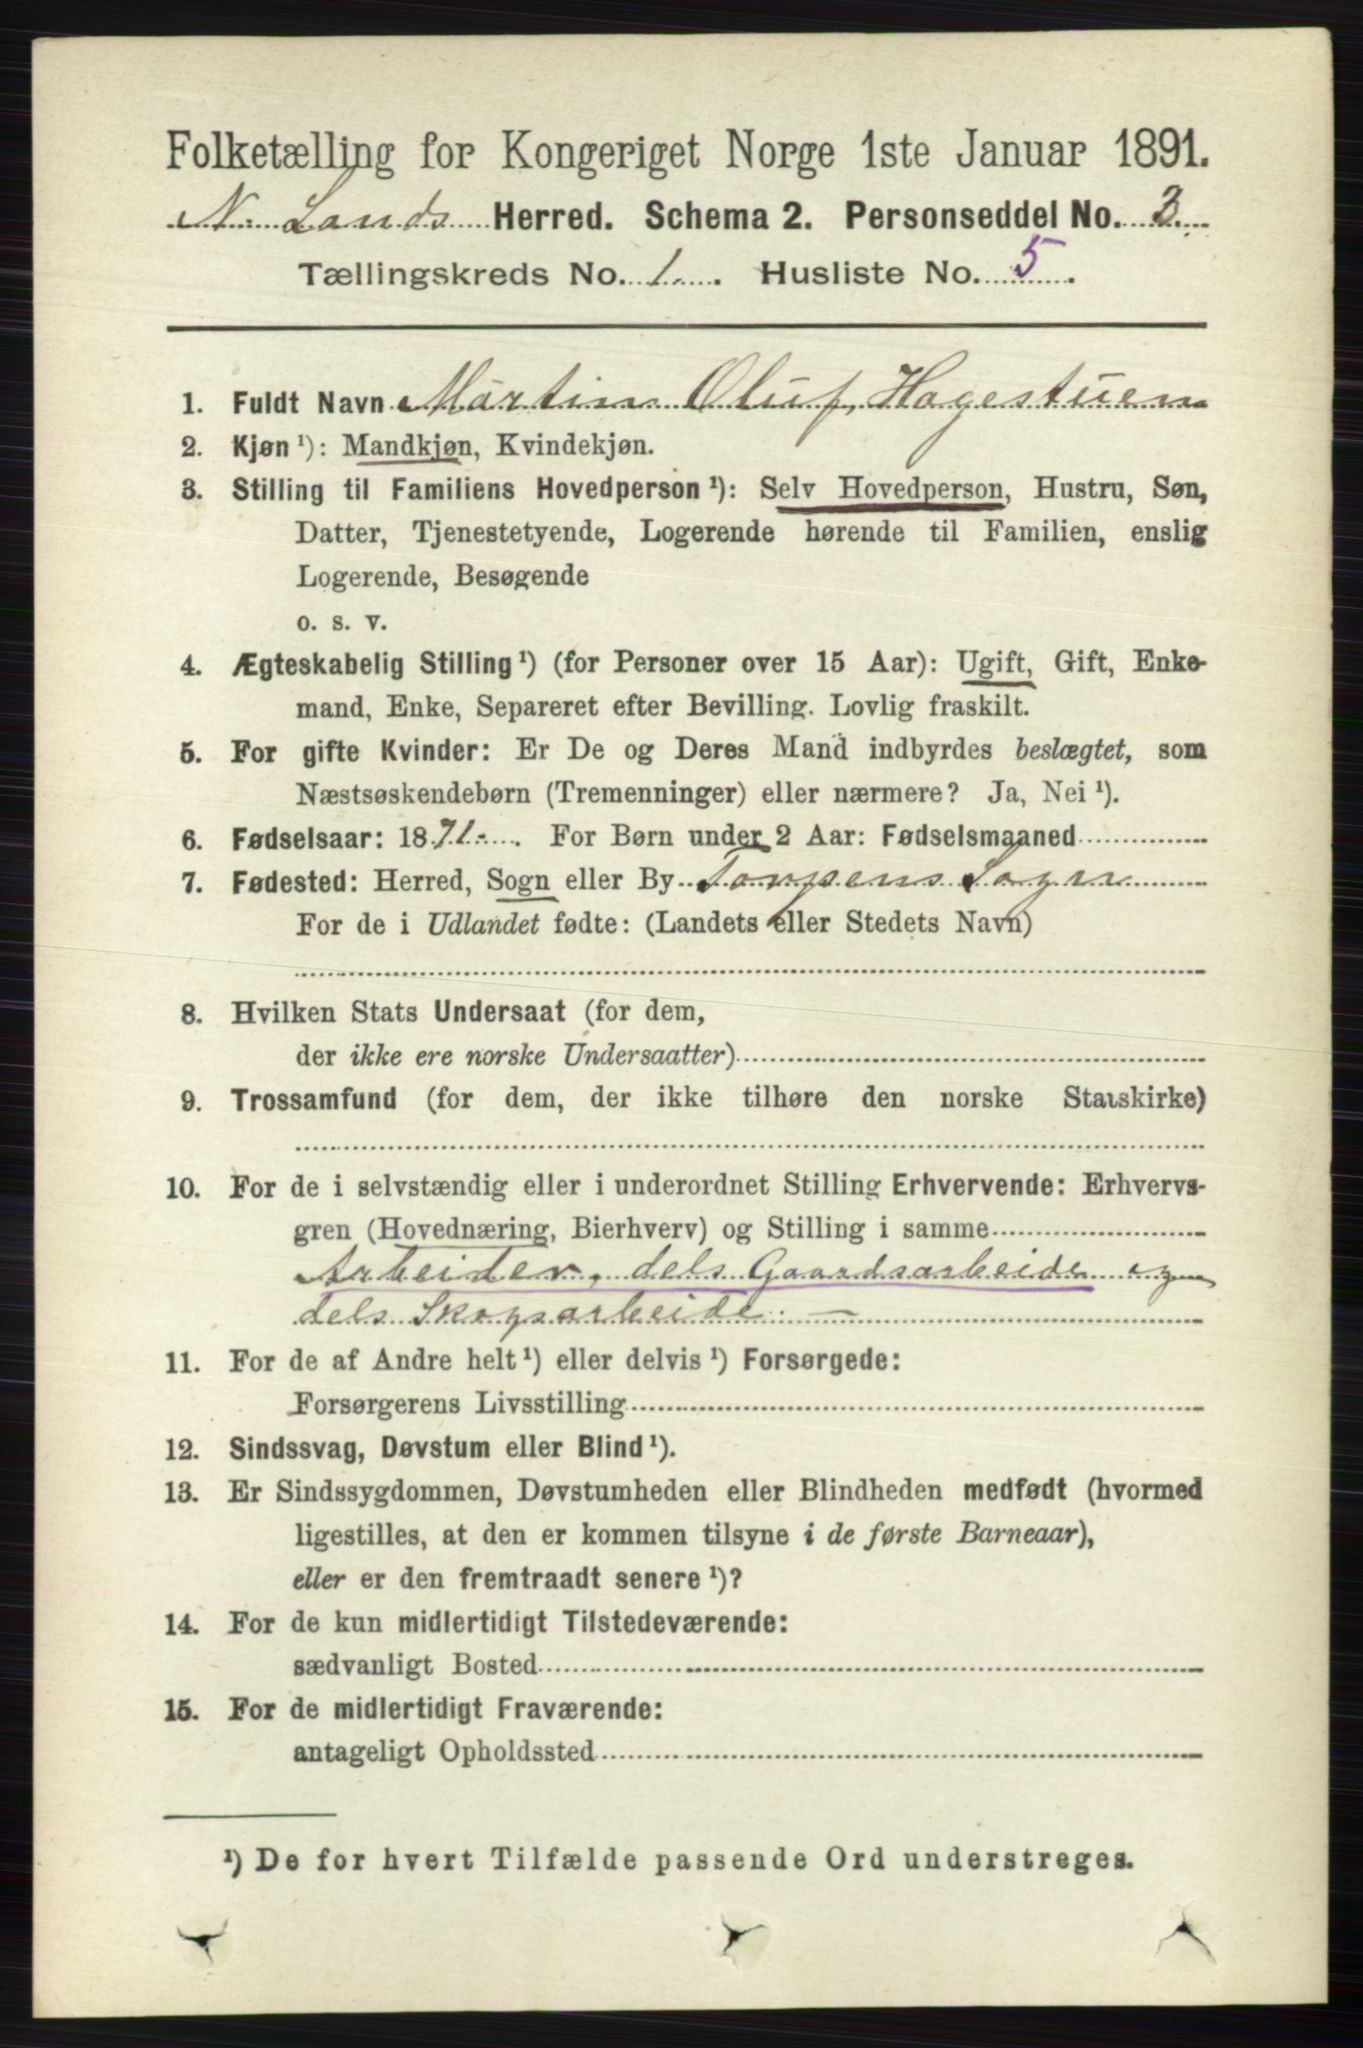 Folketælling for Kongeriget Norge 1ste Januar 1891.
N. Lands Herred. Schema 2. Personseddel No. 3.
Tællingskreds No. 1. Husliste No. 5.
1. Fuldt Navn Martin Oluf Hagestuen
2. Kjøn ¹): Mandkjøn, Kvindekjøn.
3. Stilling til Familiens Hovedperson ¹): Selv Hovedperson, Hustru, Søn,
Datter, Tjenestetyende, Logerende hørende til Familien, enslig
Logerende, Besøgende
o. s. v.
4. Ægteskabelig Stilling ¹) (for Personer over 15 Aar): Ugift, Gift, Enke-
mand, Enke, Separeret efter Bevilling. Lovlig fraskilt.
5. For gifte Kvinder: Er De og Deres Mand indbyrdes beslægtet, som
Næstsøskendebørn (Tremenninger) eller nærmere? Ja, Nei ¹).
6. Fødselsaar: 1871. For Børn under 2 Aar: Fødselsmaaned
7. Fødested: Herred, Sogn eller By Torpens Sogn
For de i Udlandet fødte: (Landets eller Stedets Navn)
8. Hvilken Stats Undersaat (for dem,
der ikke ere norske Undersaatter)
9. Trossamfund (for dem, der ikke tilhøre den norske Statskirke)
10. For de i selvstændig eller i underordnet Stilling Erhvervende: Erhvervs-
gren (Hovednæring, Bierhverv) og Stilling i samme
Arbeider, dels Gaardsarbeide og
dels Skogsarbeide. —
11. For de af Andre helt ¹) eller delvis ¹) Forsørgede:
Forsørgerens Livsstilling
12. Sindssvag, Døvstum eller Blind ¹).
13. Er Sindssygdommen, Døvstumheden eller Blindheden medfødt (hvormed
ligestilles, at den er kommen tilsyne i de første Barneaar),
eller er den fremtraadt senere ¹)?
14. For de kun midlertidigt Tilstedeværende:
sædvanligt Bosted
15. For de midlertidigt Fraværende:
antageligt Opholdssted
¹) De for hvert Tilfælde passende Ord understreges.